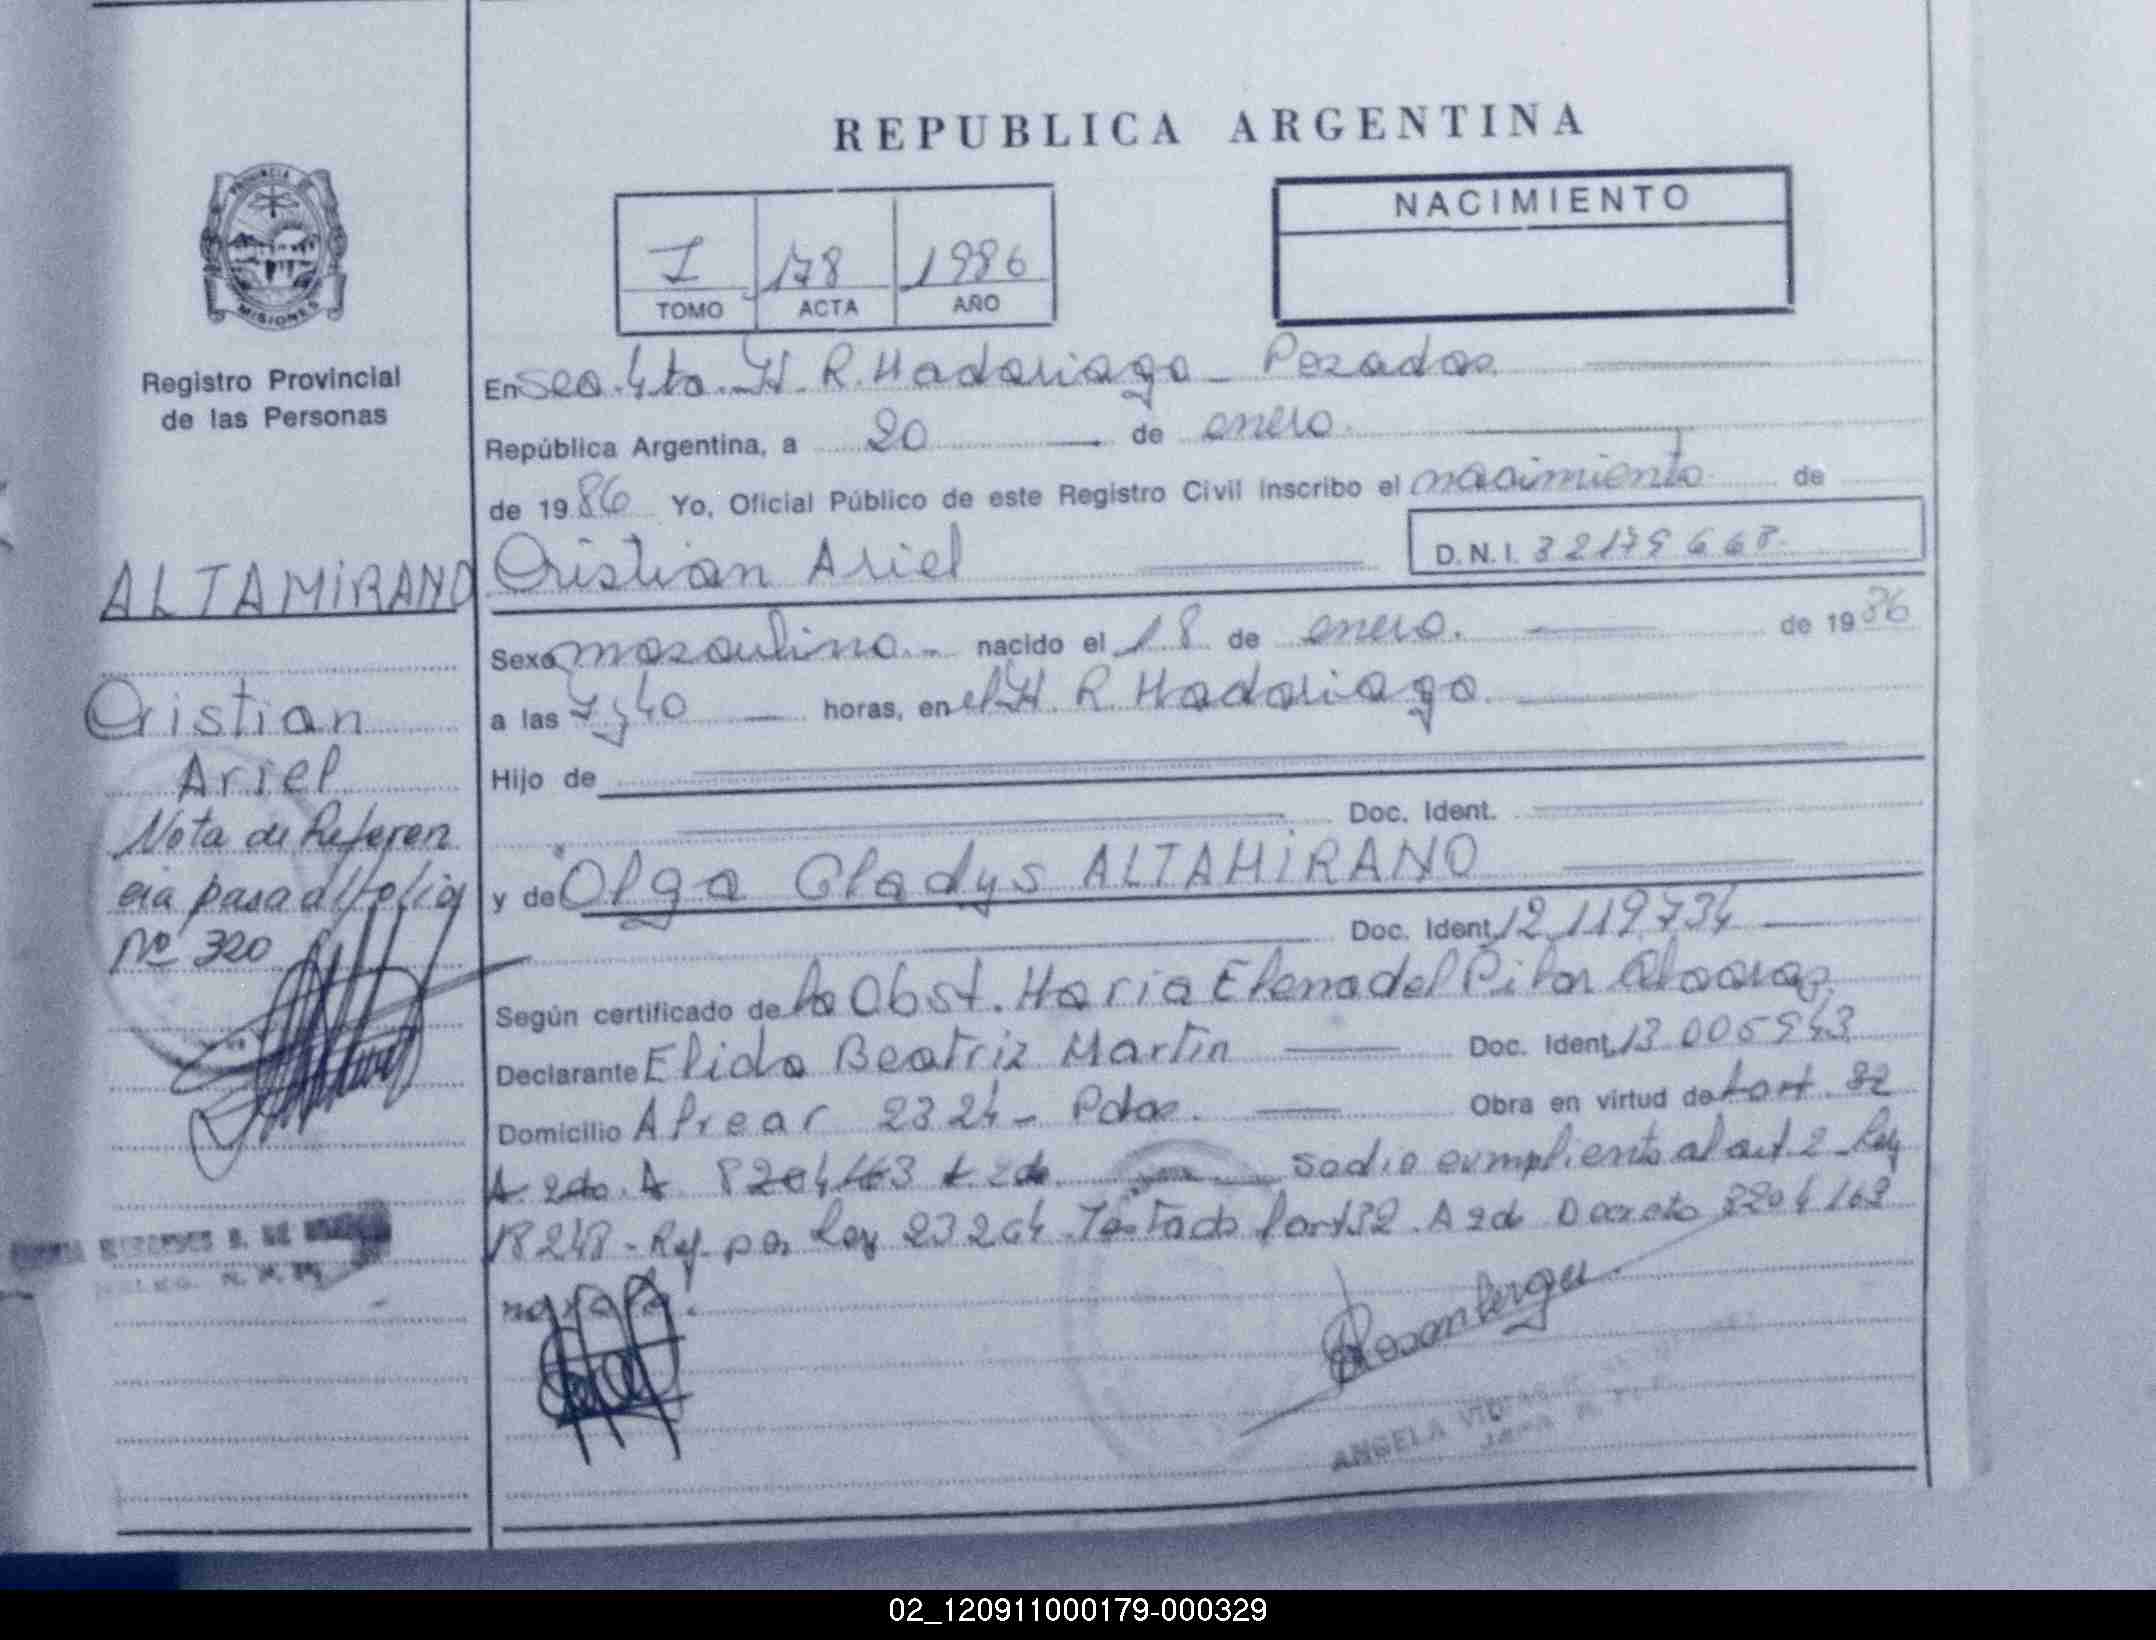 REPUBLICA ARGENTINA
PROVINCIA DE
MISIONES
Registro Provincial
de las Personas
I 178 1986
TOMO ACTA AÑO
NACIMIENTO
En Sec. 4ta. H. R. Madariaga - Posadas
República Argentina, a 20 de enero.
de 1986 Yo, Oficial Público de este Registro Civil inscribo el nacimiento de
Cristian Ariel
D.N.I. 32179668
Sexo masculino.- nacido el 18 de enero. de 1986
a las 7 y 40 horas, en el H. R. Madariaga.
Hijo de
Doc. Ident.
y de Olga Gladys ALTAMIRANO
Doc. Ident. 12.119.734
Según certificado de la Obst. Maria Elena del Pilar
Declarante Elida Beatriz Martin Doc. Ident. 13 005943
Domicilio Alvear 2324 - Pdas. Obra en virtud de lart. 32
A. 2do. A 8204/63 se dio cumplimiento al art. 2 Ley
18248 - Ref. por Ley 23264 Testado lart 32 A 2do Decreto 8204/63
no vale.
Rosemberger
ANGELA
ALTAMIRANO
Cristian
Ariel
Nota de Referen
cia pasa al folio
Nº 320
02_120911000179-000329